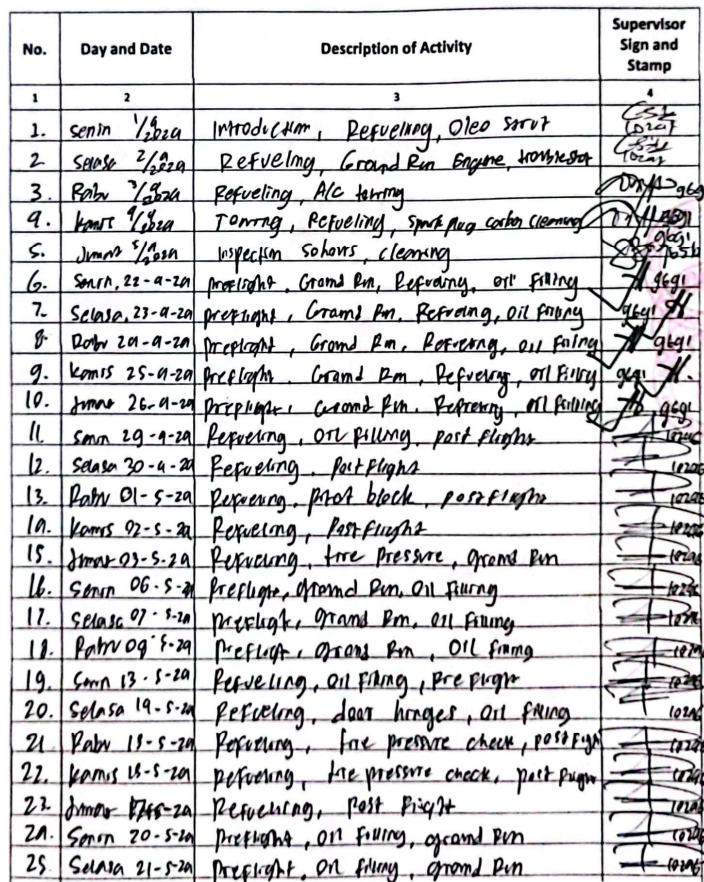 No. Day and Date Description of Activity Supervisor Sign and Stamp
1 2 3 4
1. Senin 1/4/2024 Introduction, Refueling, Oleo Strut
2 Selasa 2/4/2024 Refueling, Ground Run Engine, troubleshoot
3. Rabu 3/4/2024 Refueling, A/C towing 9691
4. Kamis 4/4/2024 Towing, Refueling, spark plug carbon cleaning 9691
5. Jumat 5/4/2024 Inspection 50hours, cleaning
6. Senin, 22-4-24 preflight, Ground Run, Refueling, oil filling 9691
7. Selasa, 23-4-24 preflight, Ground Run, Refueling, oil filling 9691
8. Rabu 24-4-24 preflight, Ground Run, Refueling, oil filling 9691
9. Kamis 25-4-24 preflight, Ground Run, Refueling, oil filling 9691
10. Jumat 26-4-24 preflight, Ground Run, Refueling, oil filling 9691
11. Senin 29-4-24 Refueling, Oil filling, post flight 10296
12. Selasa 30-4-24 Refueling, Post flight 10296
13. Rabu 01-5-24 Refueling, pitot block, post flight 10296
14. Kamis 02-5-24 Refueling, Post flight 10296
15. Jumat 03-5-24 Refueling, tire pressure, ground Run 10296
16. Senin 06-5-24 Preflight, ground Run, Oil filling 10296
17. Selasa 07-5-24 preflight, ground Run, oil filling 10296
18. Rabu 08-5-24 preflight, ground Run, Oil filling 10296
19. Senin 13-5-24 Refueling, oil filling, Pre flight 10296
20. Selasa 14-5-24 Refueling, door hinges, oil filling 10296
21 Rabu 15-5-24 Refueling, tire pressure check, post fligh 10296
22. Kamis 16-5-24 Refueling, tire pressure check, post flight 10296
23. Jumat 17-5-24 Refueling, Post Flight 10296
24. Senin 20-5-24 Preflight, oil filling, ground Run 10296
25 Selasa 21-5-24 preflight, Oil filling, ground Run 10296